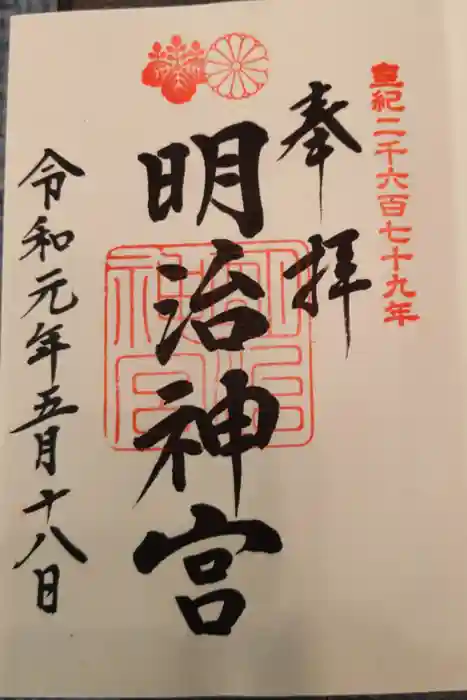 皇紀二千六百七十九年
奉拝
明治神宮
明治神宮
令和元年五月十八日